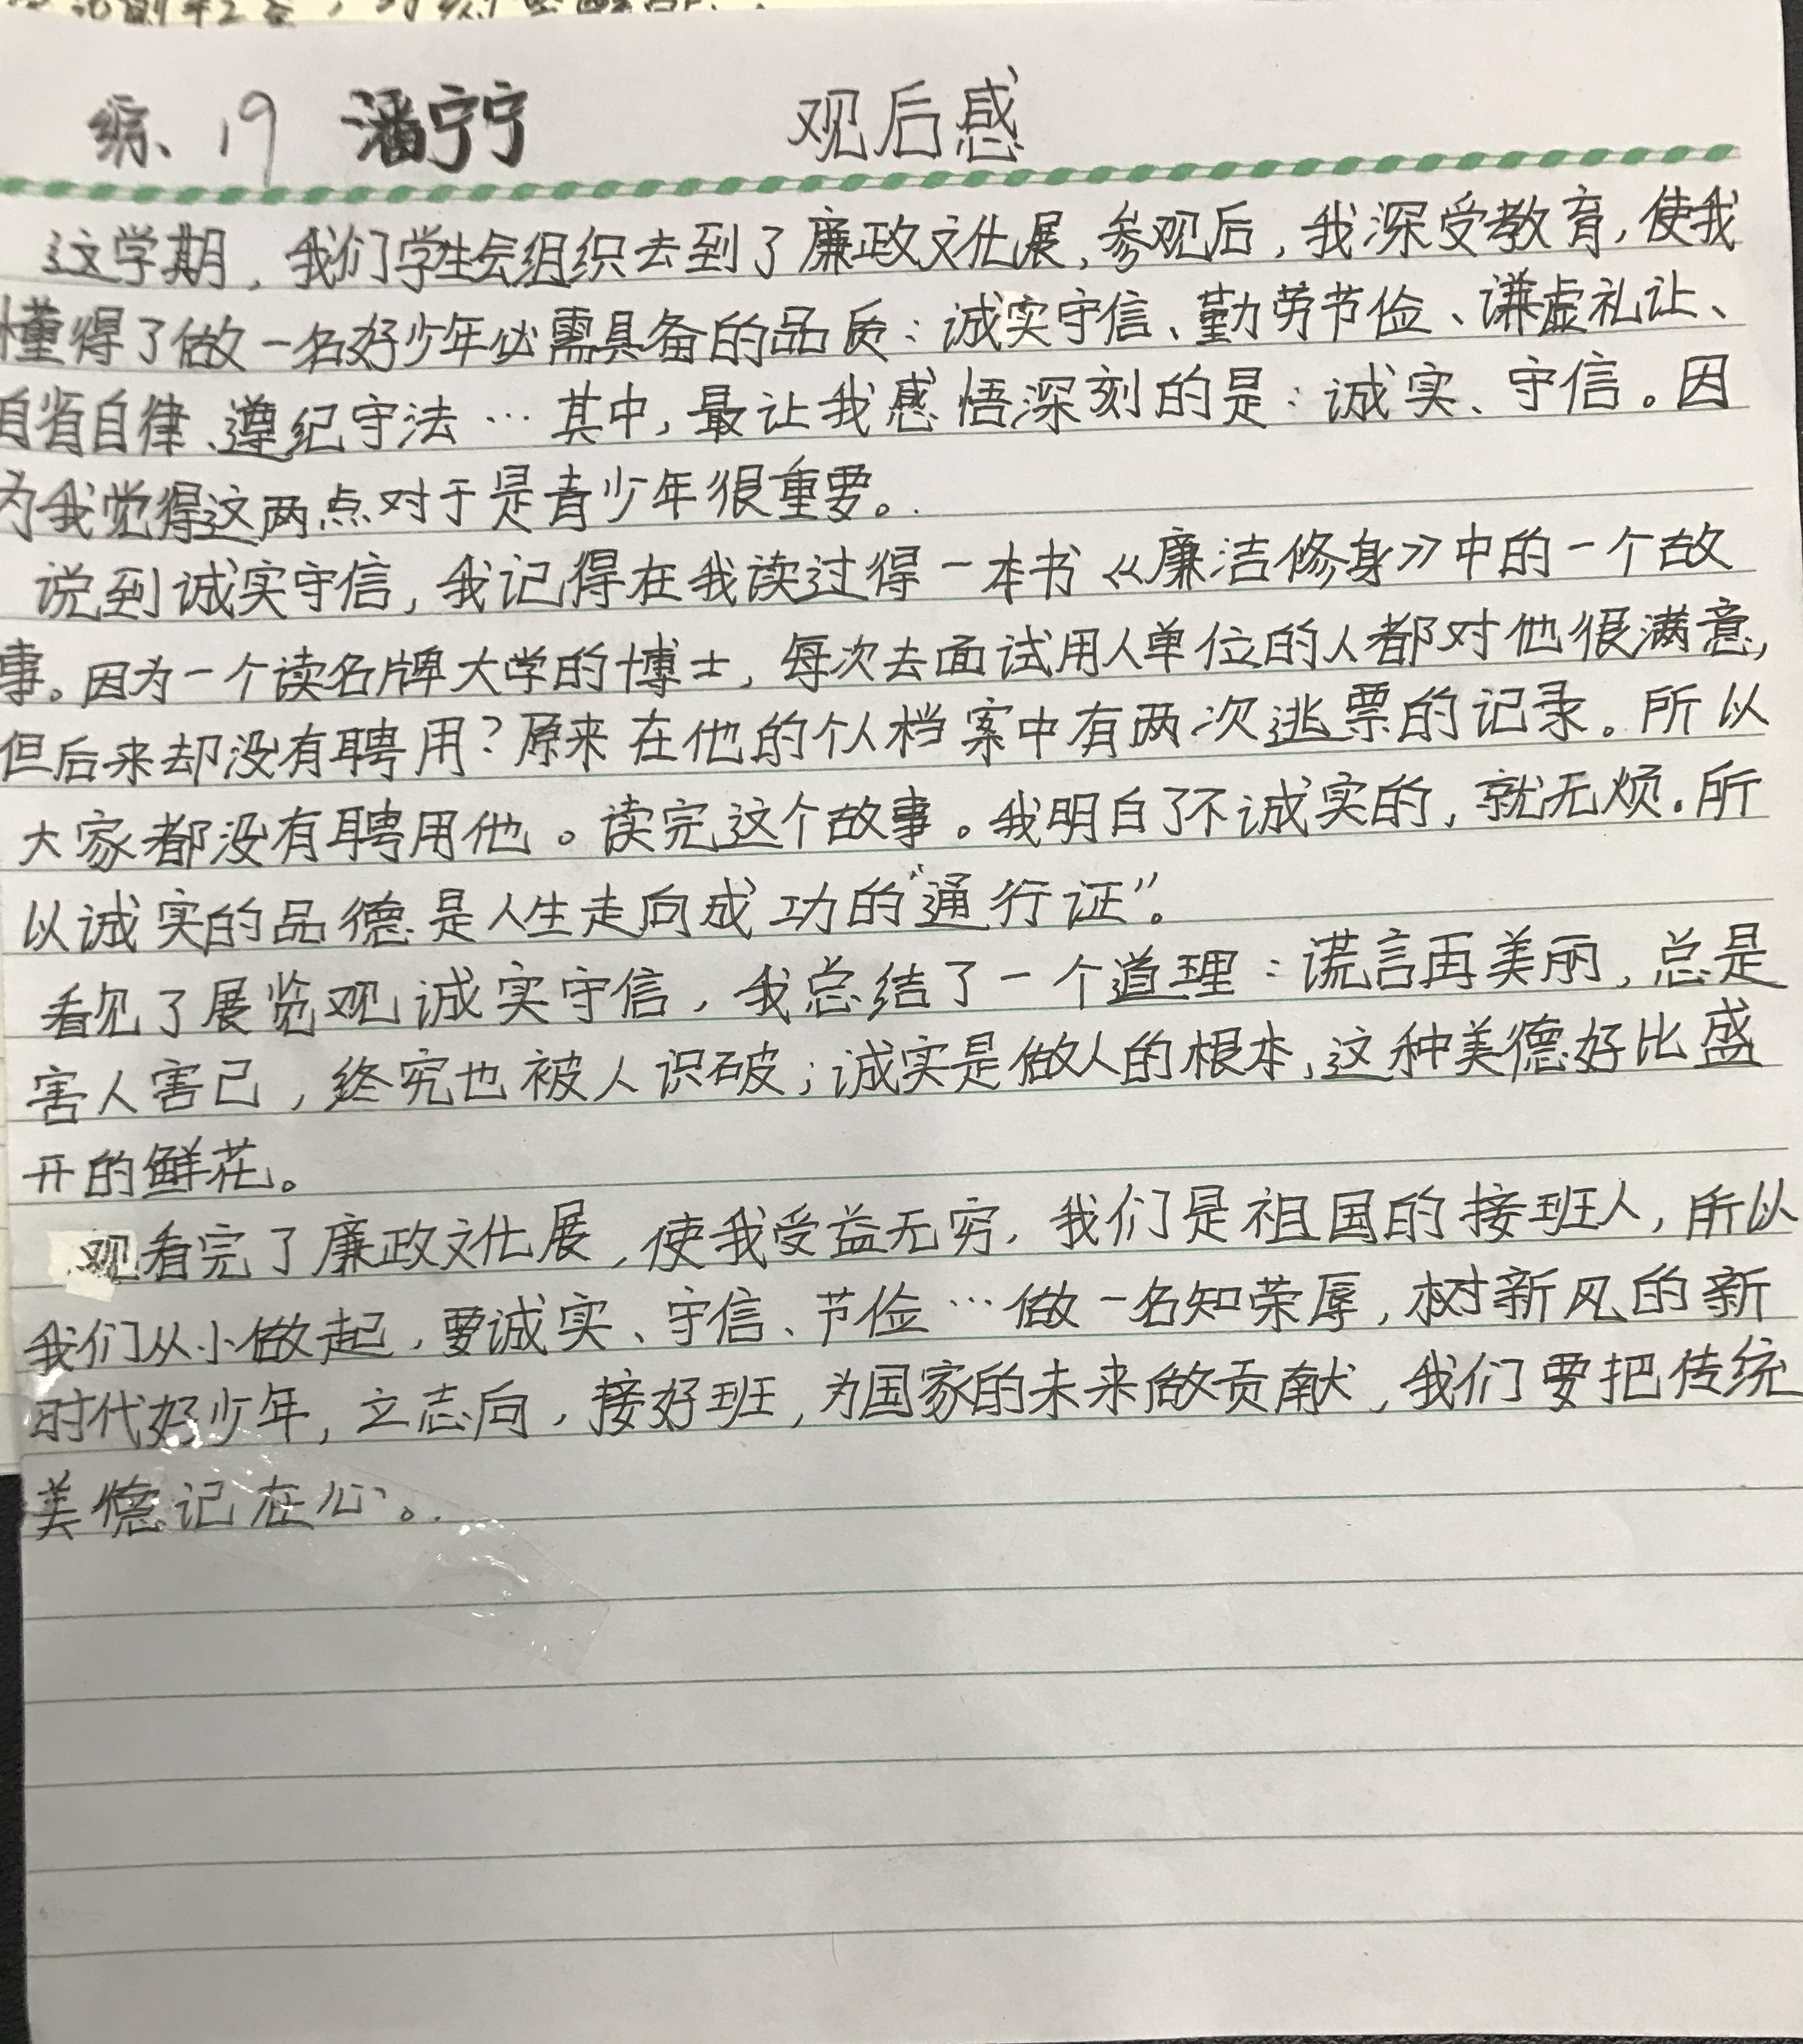 编、19 潘宁宁 观后感
这学期,我们学生会组织去到了廉政文化展,参观后,我深受教育,使我
懂得了做一名好少年必需具备的品质:诚实守信、勤劳节俭、谦虚礼让、
自省自律、遵纪守法…其中,最让我感悟深刻的是:诚实、守信。因
为我觉得这两点对于是青少年很重要。
说到诚实守信,我记得在我读过得一本书《廉洁修身》中的一个故
事。因为一个读名牌大学的博士,每次去面试用人单位的人都对他很满意,
但后来却没有聘用?原来在他的个人档案中有两次逃票的记录。所以
大家都没有聘用他。读完这个故事。我明白了不诚实的,就无烦.所
以诚实的品德是人生走向成功的“通行证”。
看见了展览观诚实守信,我总结了一个道理:谎言再美丽,总是
害人害己,终究也被人识破;诚实是做人的根本,这种美德好比盛
开的鲜花。
观看完了廉政文化展,使我受益无穷,我们是祖国的接班人,所以
我们从小做起,要诚实、守信、节俭…做一名知荣辱,树新风的新
时代好少年,立志向,接好班,为国家的未来做贡献,我们要把传统
美德记在心。